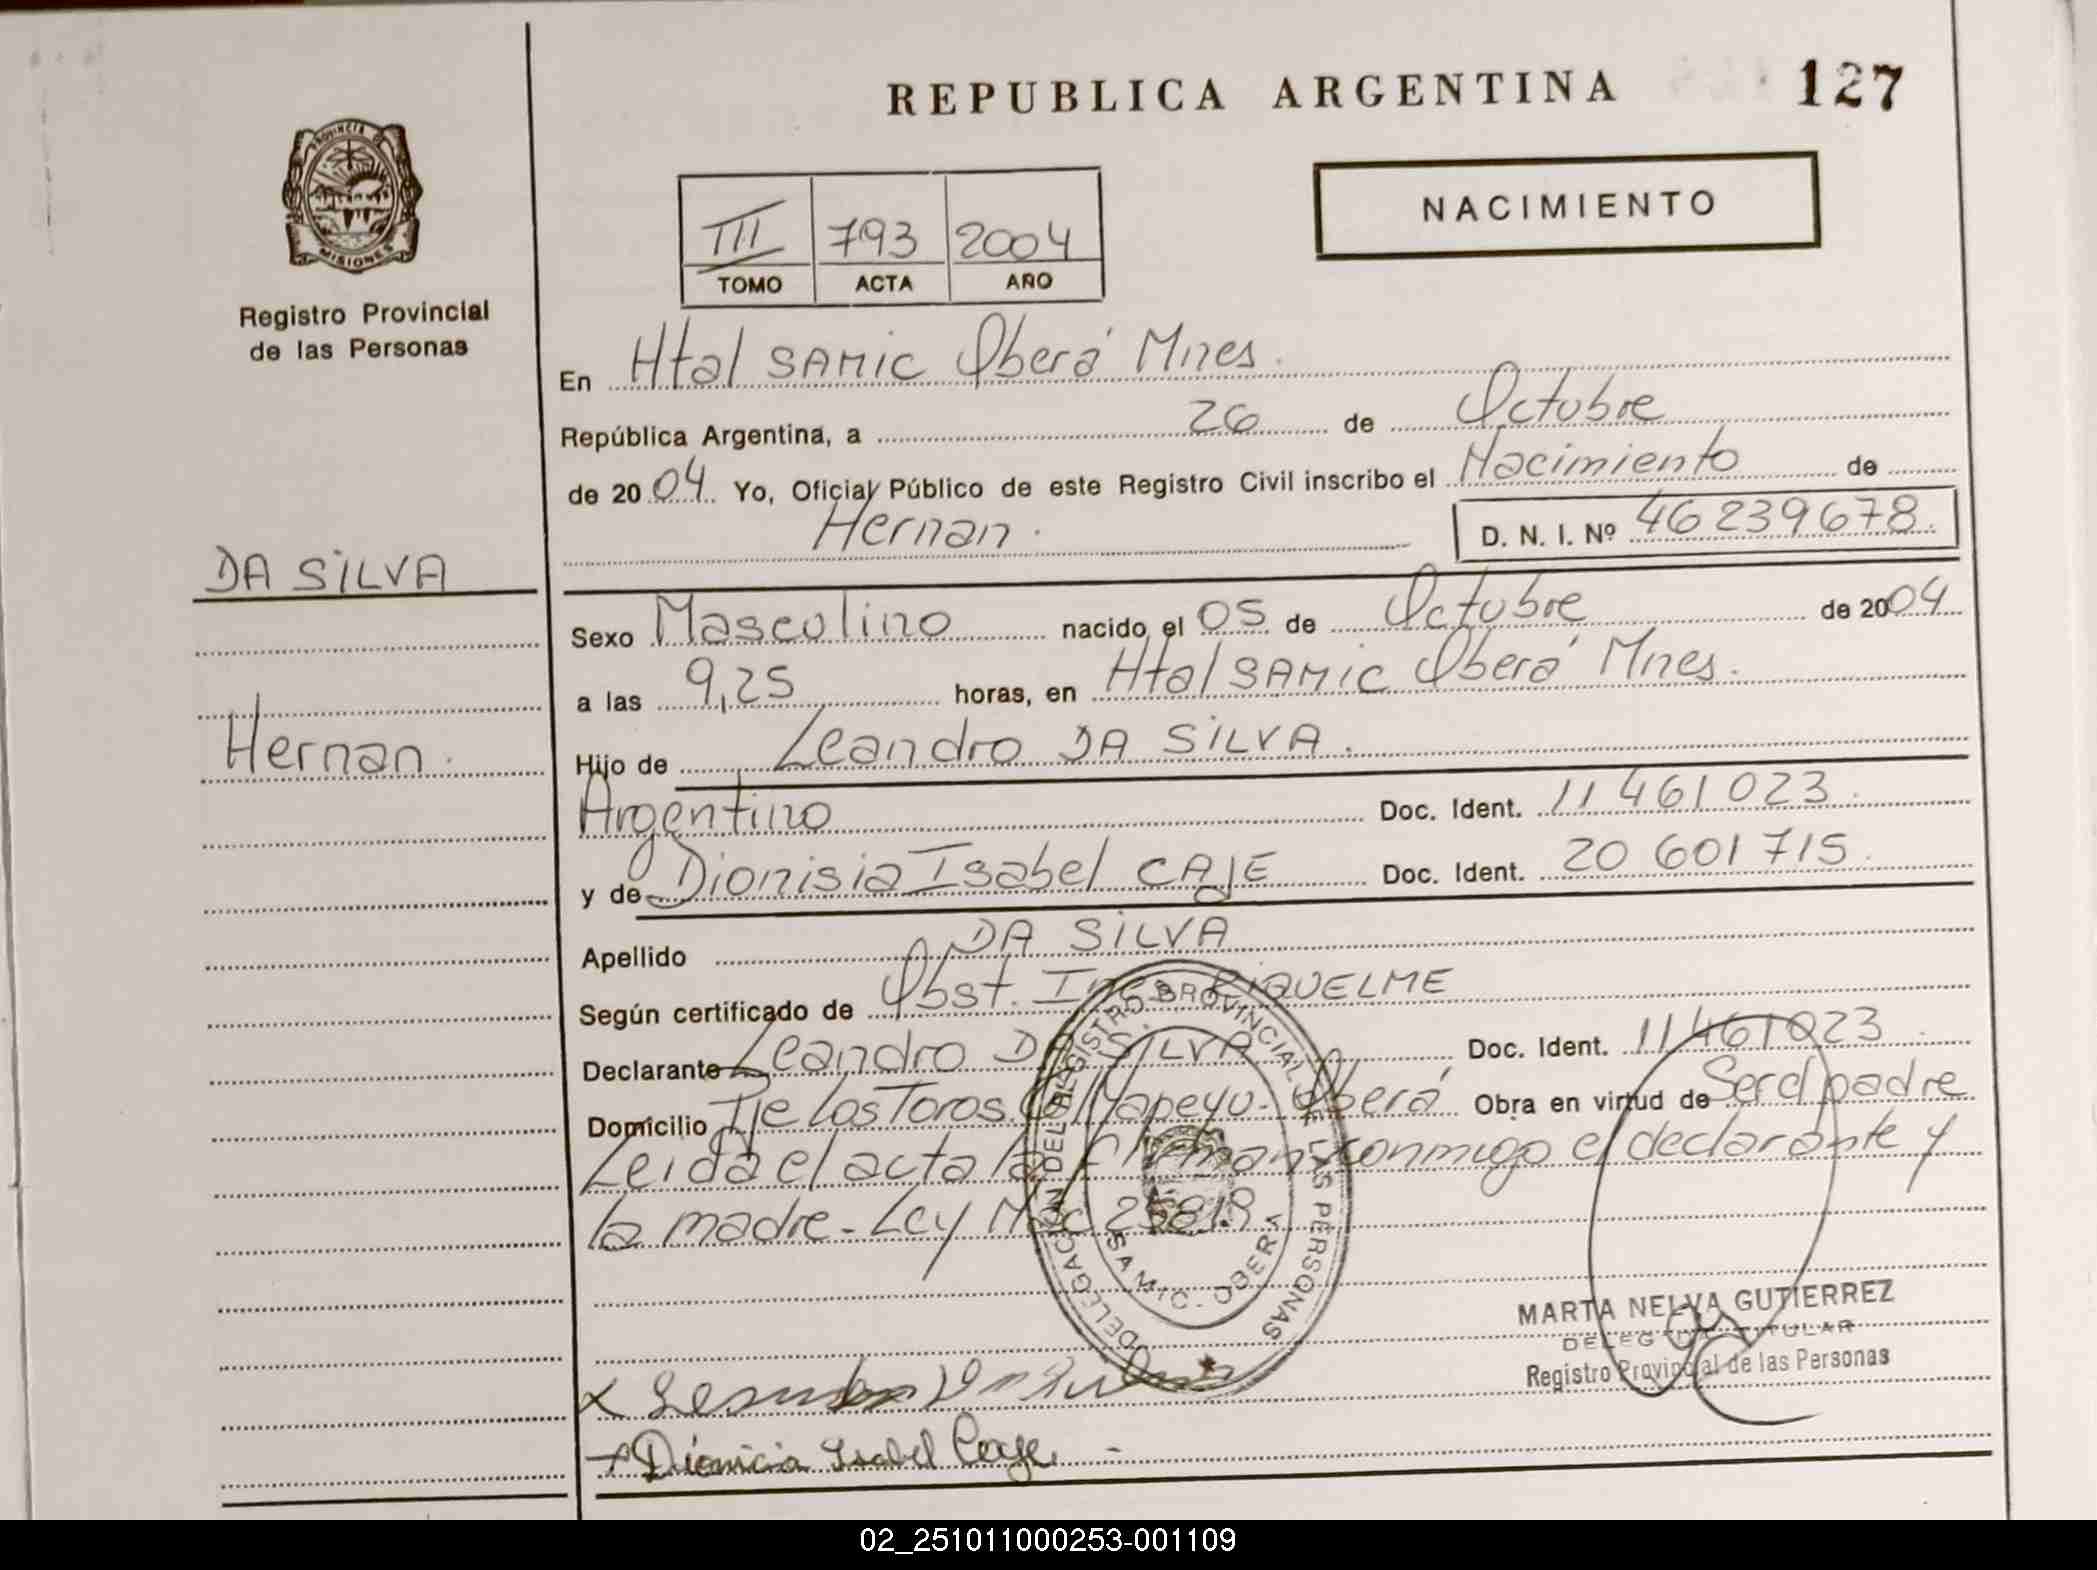 REPUBLICA ARGENTINA 127
PROVINCIA DE
MISIONES
Registro Provincial
de las Personas
III 793 2004
TOMO ACTA AÑO
NACIMIENTO
En Htal SAMIC Oberá Mnes.
República Argentina, a 26 de Octubre
de 2004. Yo, Oficial Público de este Registro Civil inscribo el Nacimiento de
Hernan. D. N. I. Nº 46 239 678.
DA SILVA
Hernan.
Sexo Masculino nacido el 05 de Octubre de 2004
a las 9,25 horas, en Htal SAMIC Oberá Mnes.
Hijo de Leandro DA SILVA.
Argentino Doc. Ident. 11 461 023.
y de Dionisia Isabel CAJE Doc. Ident. 20 601 715.
Apellido DA SILVA
Según certificado de Obst. RIQUELME
Declarante Leandro DA SILVA Doc. Ident. 11 461 023
Domicilio Tje Los Toros Yapeyu - Oberá Obra en virtud de Ser el padre
Leida el acta la firman conmigo el declarante y
la madre - Ley Nac 25819
DELEGACION DEL REGISTRO PROVINCIAL DE LAS PERSONAS
SAMIC - OBERA
MARTA NELVA GUTIERREZ
DELEGADA TITULAR
Registro Provincial de las Personas
x Leandro Da Silva
+ Dionicia Isabel Caje -
02_251011000253-001109